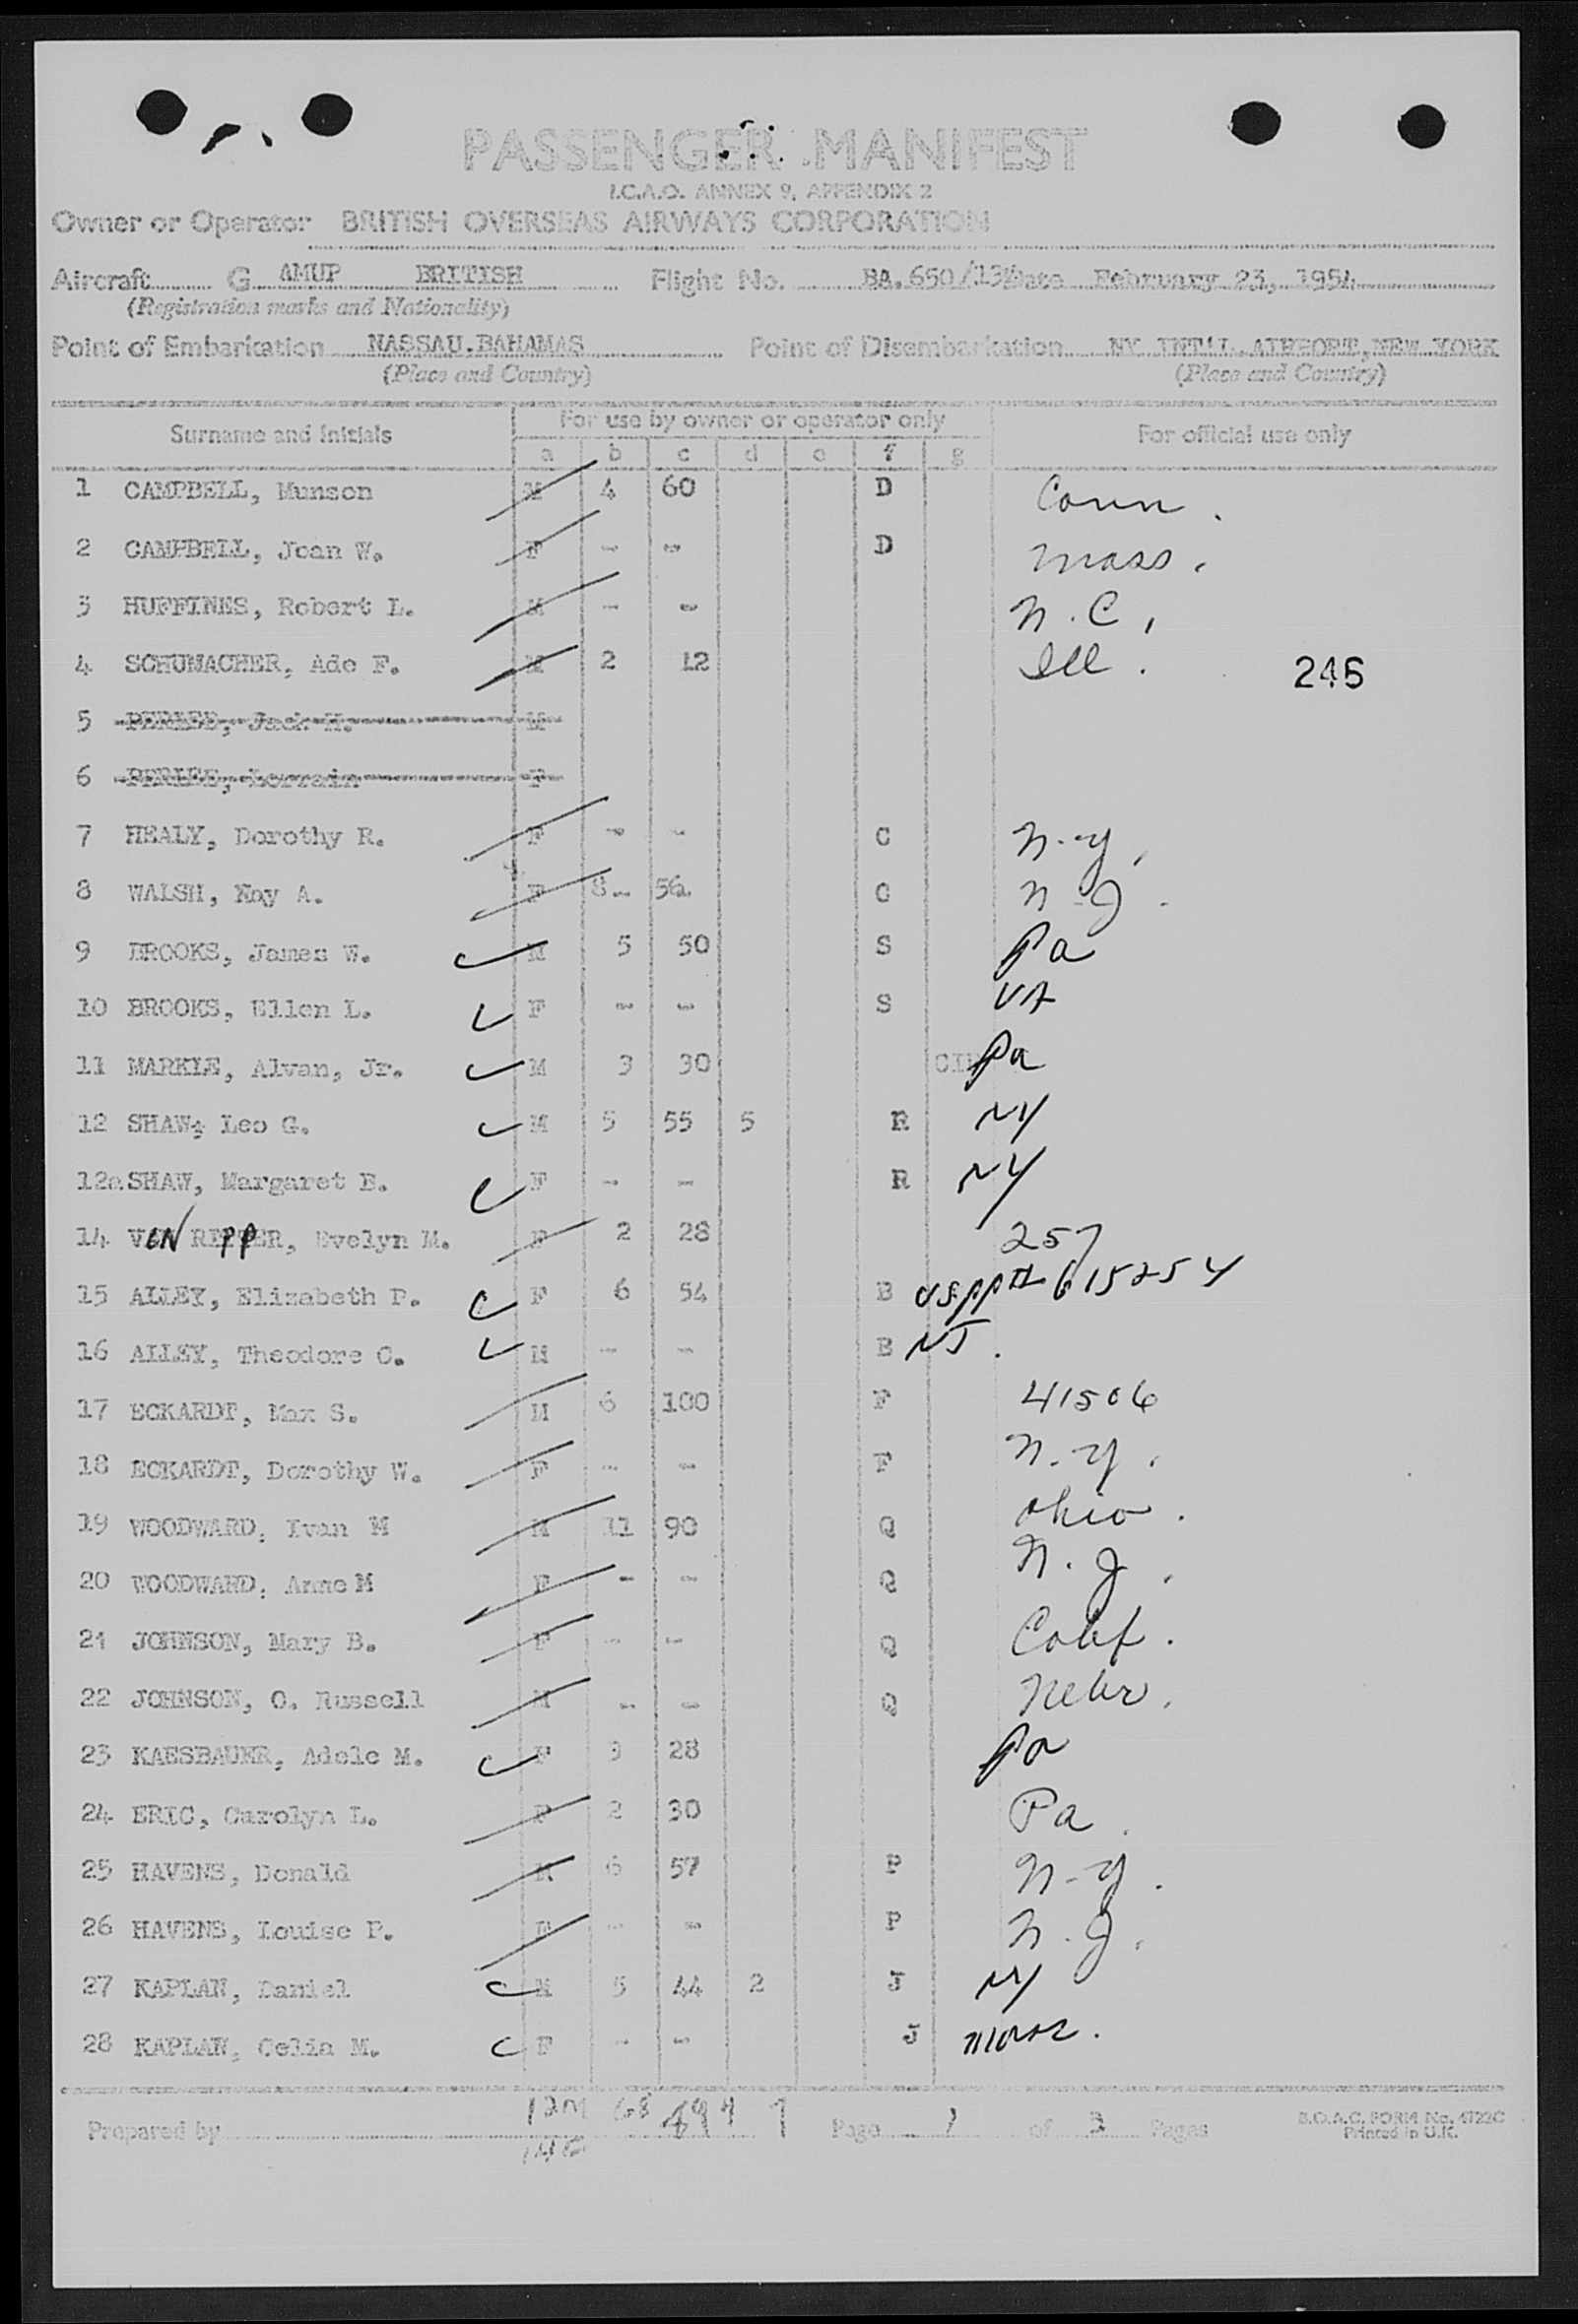 PASSENGER MANIFEST
I.C.A.O. ANNEX 9, APPENDIX 2
Owner or Operator BRITISH OVERSEAS AIRWAYS CORPORATION
Aircraft G AMUP BRITISH Flight No. BA.650/ Date February 23, 1954
(Registration marks and Nationality)
Point of Embarkation NASSAU.BAHAMAS Point of Disembarkation NY INT'L AIRPORT, NEW YORK
(Place and Country) (Place and Country)
Surname and Initials For use by owner or operator only For official use only
a b c d e f g
1 CAMPBELL, Munson M 4 60 D Conn.
2 CAMPBELL, Joan W. F - - D Mass.
3 HUFFINES, Robert L. M - - N.C,
4 SCHUMACHER, Ado F. M 2 12 Ill. 246
5 Jack H. M
6 Lorrain F
7 HEALY, Dorothy R. F - - C N.Y.
8 WALSH, Kay A. F 8 - 56 C N.J.
9 BROOKS, James W. M 5 50 S Pa
10 BROOKS, Ellen L. F - - S VA
11 MARKLE, Alvan, Jr. M 3 30 Pa
12 SHAW, Leo G. M 5 55 5 R NY
12a SHAW, Margaret E. F - - R NY
14 VAN RIPPER, Evelyn M. F 2 28 257
15 ALLEY, Elizabeth P. F 6 54 B USPP# 615254
16 ALLEY, Theodore C. M - - B NJ.
17 ECKARDT, Max S. M 6 100 F 41506
18 ECKARDT, Dorothy W. F - - F N.Y.
19 WOODWARD, Ivan M M 11 90 Q Ohio.
20 WOODWARD, Anne M F - - Q N.J.
21 JOHNSON, Mary B. F - - Q Calif.
22 JOHNSON, O. Russell M - - Q Nebr.
23 KAESBAUER, Adele M. F 3 28 Pa
24 ERIC, Carolyn L. F 2 30 Pa.
25 HAVENS, Donald M 6 57 P N.Y.
26 HAVENS, Louise P. F - - P N.J.
27 KAPLAN, Daniel M 5 44 2 J NY
28 KAPLAN, Celia M. F - - J Mass.
12M 68 7
Prepared by Page 1 of 3 Pages B.O.A.C. FORM No. 4722C
14F Printed in U.K.